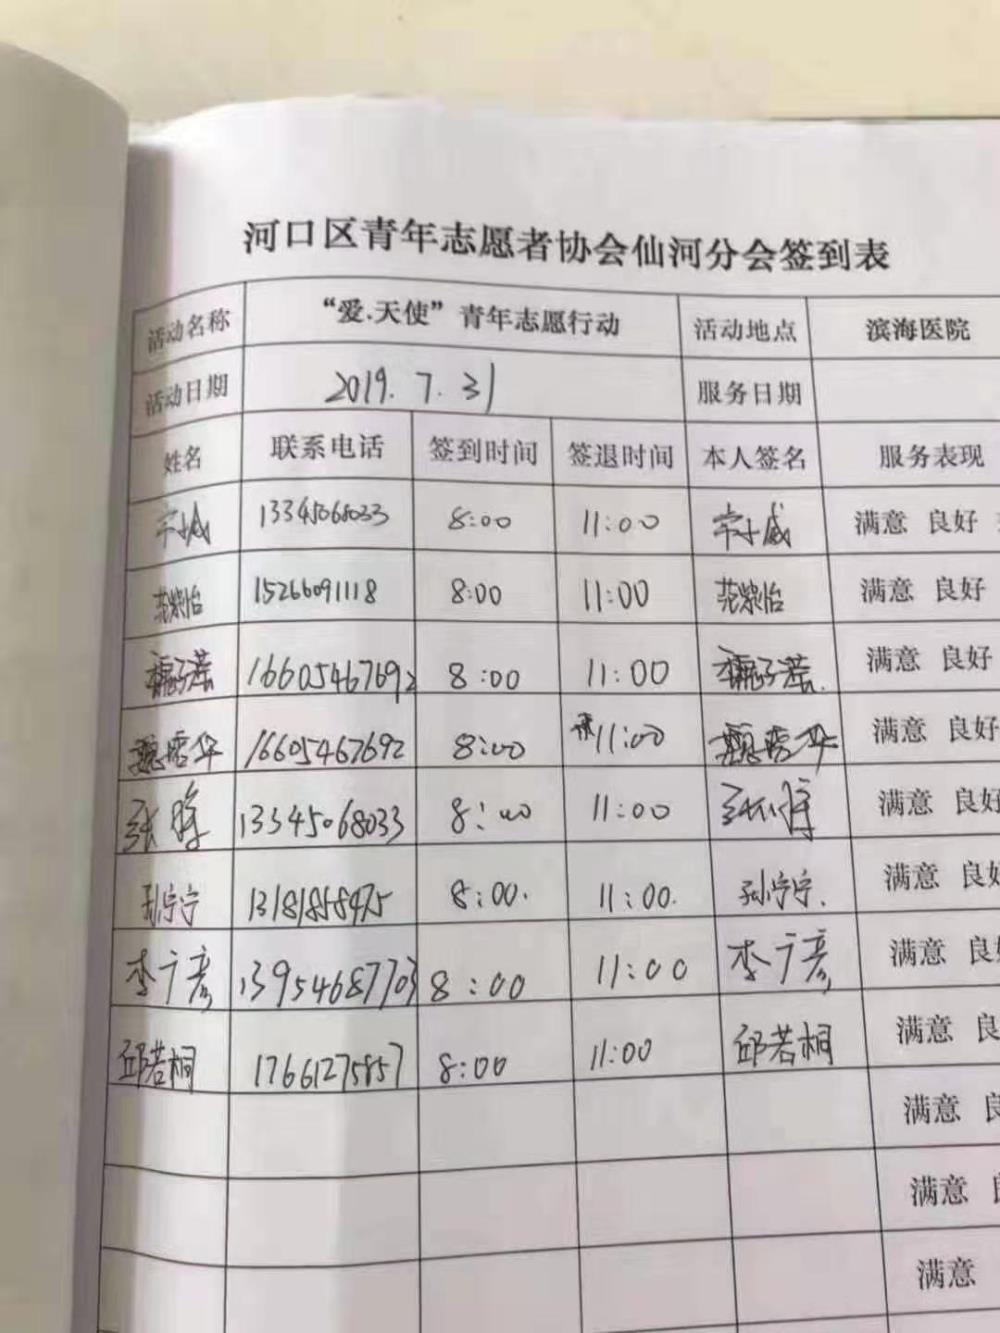 河口区青年志愿者协会仙河分会签到表
活动名称 “爱.天使”青年志愿行动 活动地点 滨海医院
活动日期 2019.7.31 服务日期
姓名 联系电话 签到时间 签退时间 本人签名 服务表现
13345068033 8:00 11:00 满意 良好
15266091118 8:00 11:00 满意 良好
16605467692 8:00 11:00 满意 良好
16605467692 8:00 11:00 满意 良好
13345068033 8:00 11:00 满意 良好
孙宁宁 8:00. 11:00. 孙宁宁. 满意 良好
李广彦 13954687703 8:00 11:00 李广彦 满意 良
邱若桐 17661275857 8:00 11:00 邱若桐 满意 良
满意
满意
满意